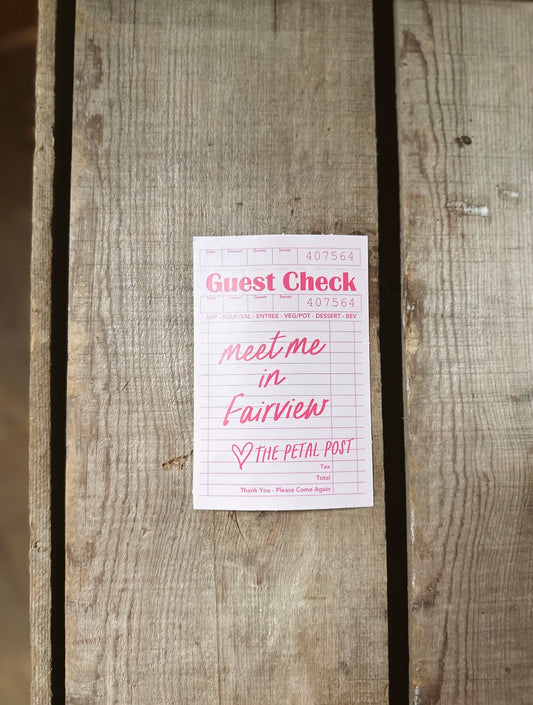 Date Amount Guests Server 407564
Guest Check
Date Amount Guests Server 407564
APP - SOUP/SAL - ENTREE - VEG/POT - DESSERT - BEV
meet me
in
Fairview
♡ THE PETAL POST
Tax
Total
Thank You - Please Come Again